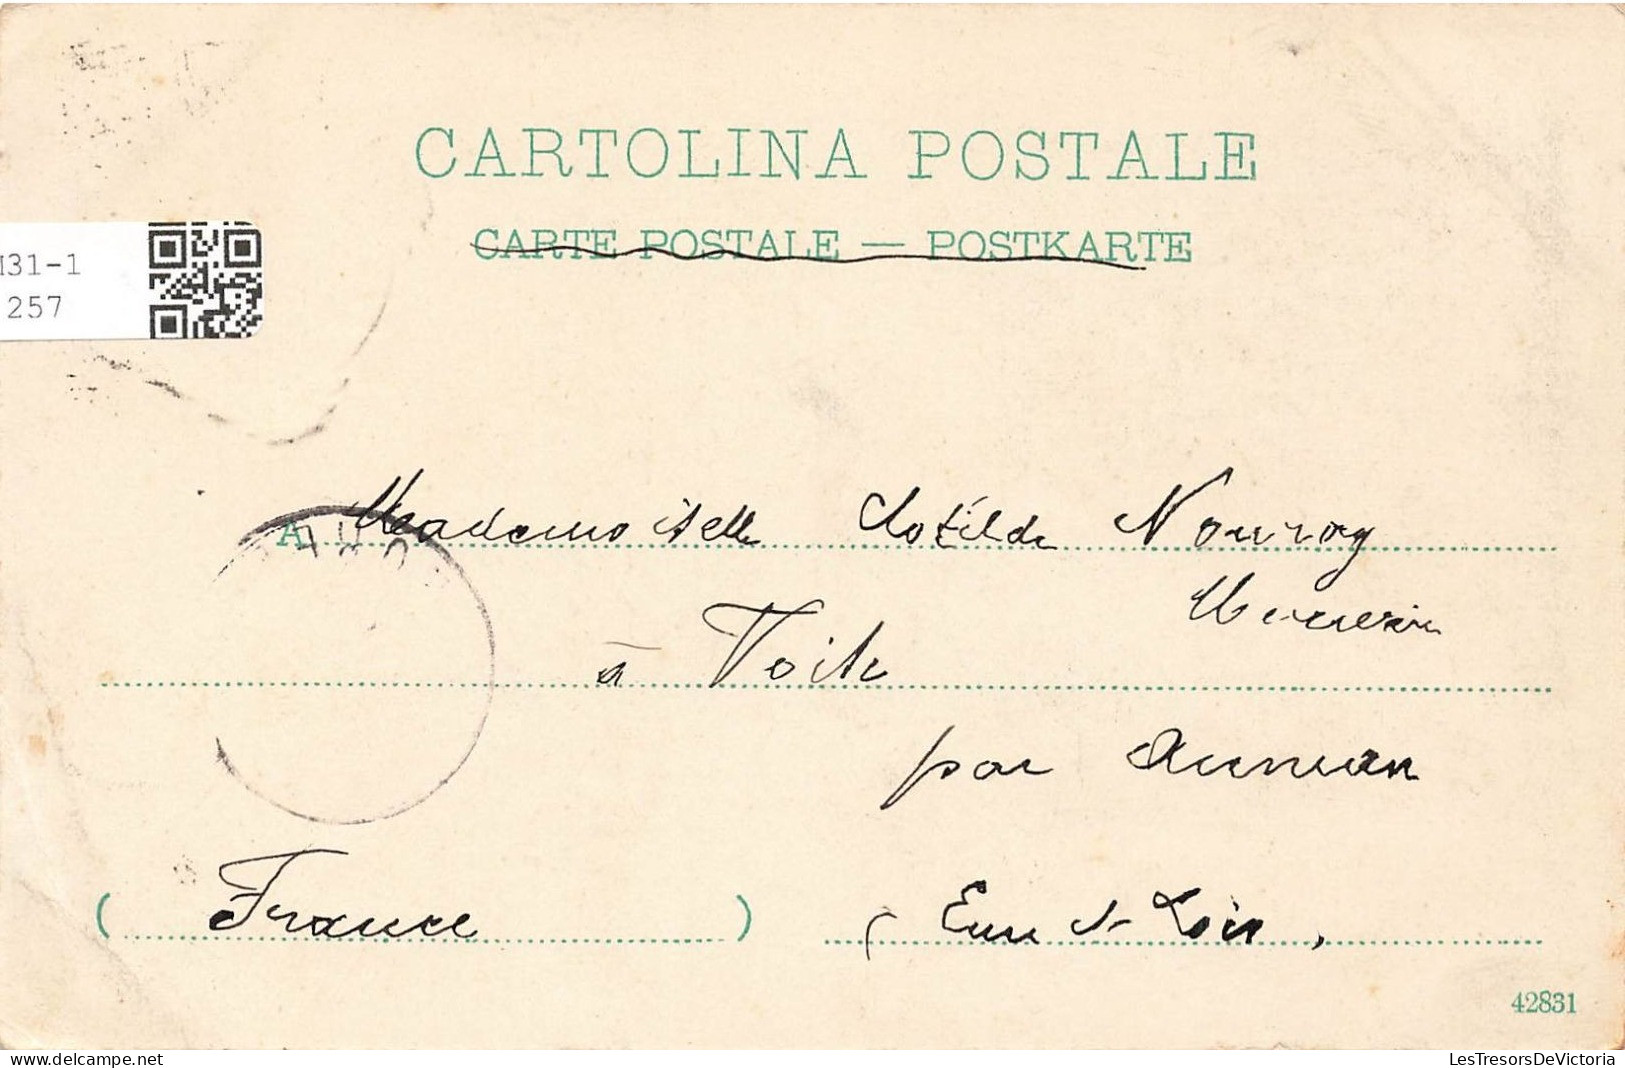 CARTOLINA POSTALE
CARTE POSTALE — POSTKARTE
31-1
257
A Mademoiselle Clotilde Nourroy
à Voise
par Auneau
( France ) ( Eure et Loir,
42831
LesTresorsDeVictoria